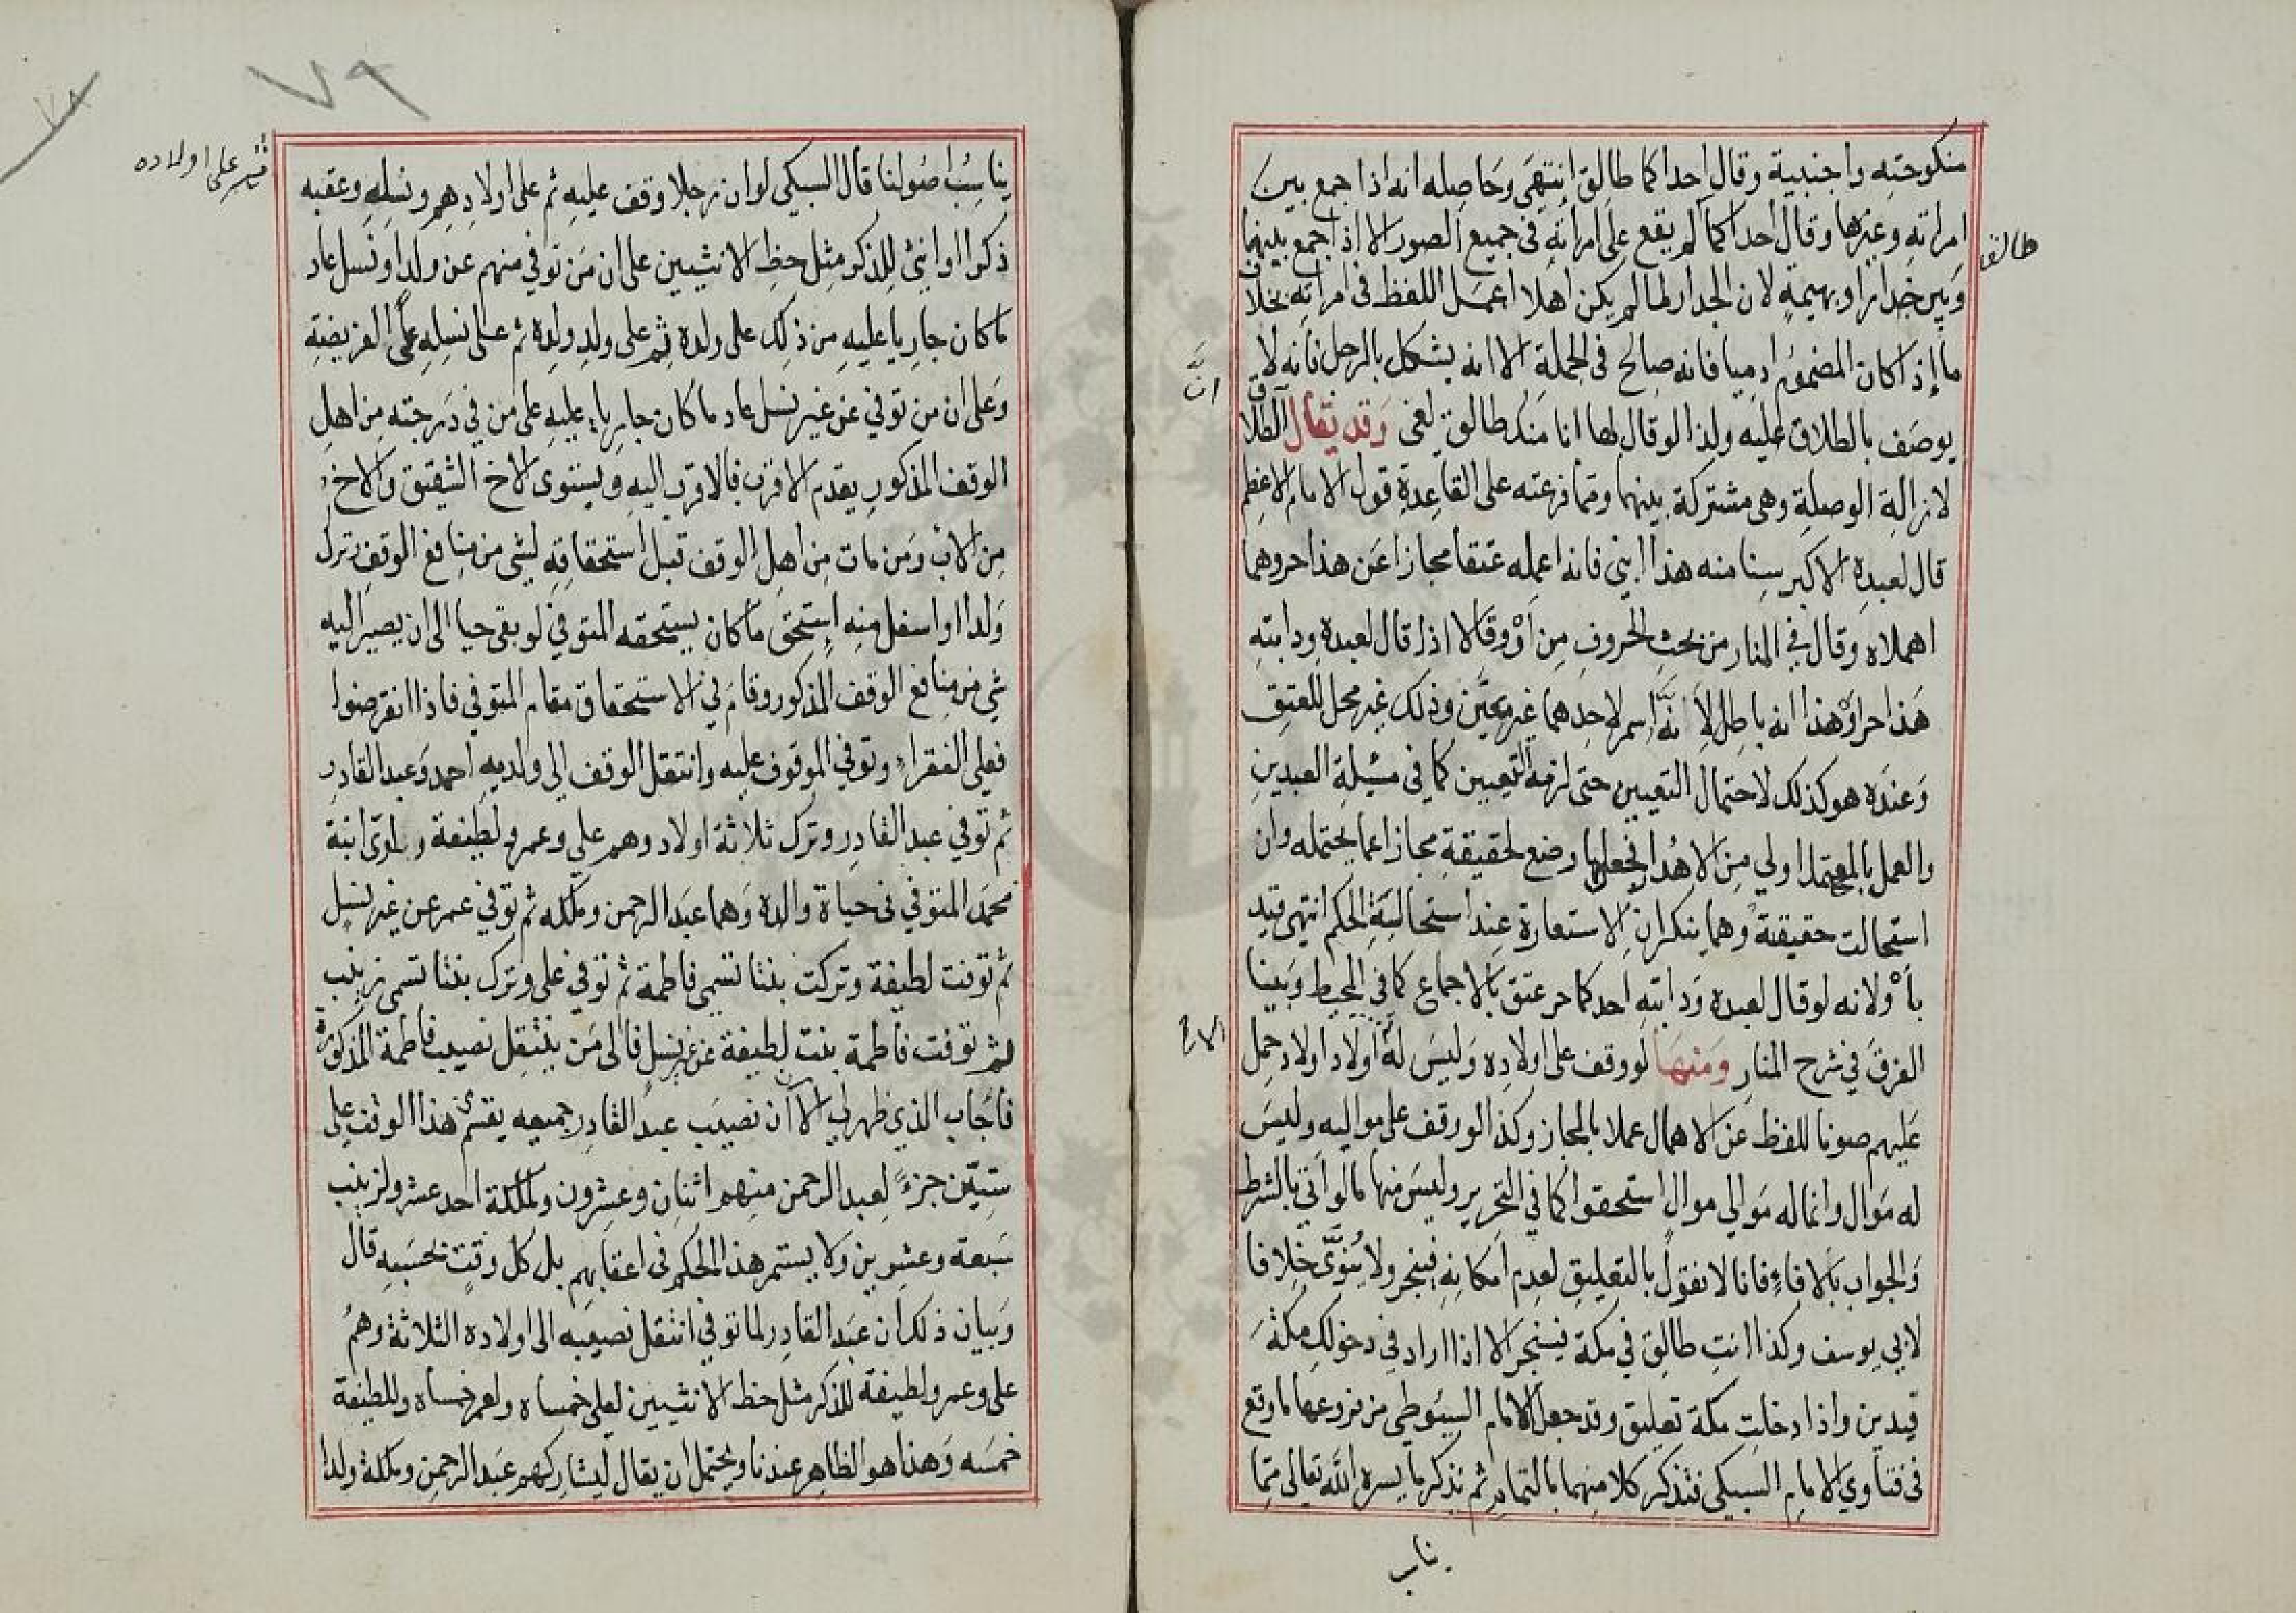 منكوحته واجنبية وقال احداكما طالق انتهى وحاصله انه اذا جمع بين
امراته وغيرها وقال احداكما لم يقع على امراته في جميع الصور الا اذا جمع بينهما
طالق
وبين جدار او بهيمة لان الجدار لما لم يكن اهلا اعمل اللفظ في امراته بخلاف
ما إذا كان المضموم ادميا فانه صالح في الجملة الا انه يشكل بالرجل فانه لا
يوصف بالطلاق عليه ولذا لو قال لها انا منك طالق لغى وقد يقال ان الطلاق
لازالة الوصلة وهى مشتركة بينهما ومما فرعته على القاعدة قول الامام الاعظم
قال لعبده الاكبر سنا منه هذا ابني فانه اعمله عتقا مجازا عن هذا حر وهما
اهملاه وقال في المنار من بحث الحروف من أو وقالا اذا قال لعبده ودابته
هذا حر أو هذا انه باطل لانه اسم لاحدهما غير معين وذلك غير محل للعتق
وعنده هو كذلك لاحتمال التعيين حتى لزمه التعيين كما في مسئلة العبدين
والعمل بالمحتمل اولي من الاهدار فجعل ما وضع لحقيقة مجازا عما يحتمله وان
استحالت حقيقة وهما ينكران الاستعارة عند استحالة الحكم انتهى قيد
بأو لانه لو قال لعبده ودابته احدكما حر عتق بالاجماع كما في المحيط وبينا
الفرق في شرح المنار ومنها لو وقف على اولاده وليس له الا اولاد اولاد حمل
عليهم صونا للفظ عن الاهمال عملا بالمجاز وكذا لو وقف على مواليه وليس
له موال وانما له موالي موال استحقوا كما في التحرير وليس منها ما لو اتي بالشرط
والجواب بلا فاء فانا لا نقول بالتعليق لعدم امكانه فينجز ولا ينوى خلافا
لابي يوسف وكذا انت طالق في مكة فينجز الا اذا اراد في دخولك مكة
قيدين واذا دخلت مكة تعليق وقد جعل الامام السيوطي من فروعها ما وقع
في فتاوي الامام السبكي فنذكر كلا منهما بالتمام ثم نذكر ما يسره الله تعالى مما
يناسب
٧٩
٧٨
يناسب اصولنا قال السبكي لو ان رجلا وقف عليه ثم على اولادهم ونسله وعقبه
ثم على اولاده
ذكرا او انثى للذكر مثل حظ الانثيين على ان من توفي منهم عن ولد او نسل عاد
ما كان جاريا عليه من ذلك على ولده ثم على ولد ولده ثم على نسله على الفريضة
وعلى ان من توفي عن غير نسل عاد ما كان جاريا عليه على من في درجته من اهل
الوقف المذكور يقدم الاقرب فالاقرب اليه ويستوى الاخ الشقيق والاخ
من الاب ومن مات من اهل الوقف قبل استحقاقه لشى من منافع الوقف وترك
ولدا او اسفل منه استحق ما كان يستحقه المتوفي لو بقى حيا الى ان يصير اليه
شي من منافع الوقف المذكور وقام في الاستحقاق مقام المتوفي فاذا انقرضوا
فعلى الفقراء وتوفي الموقوف عليه وانتقل الوقف الى ولديه احمد وعبد القادر
ثم توفي عبد القادر وترك ثلاثة اولاد وهم علي وعمر ولطيفة وولدى ابنة
محمد المتوفي في حياة والده وهما عبد الرحمن وملكه ثم توفي عمر عن غير نسل
ثم توفت لطيفة وتركت بنتا تسمى فاطمة ثم توفي على وترك بنتا تسمى زينب
ثم توفت فاطمة بنت لطيفة عن غير نسل فالى من ينتقل نصيب فاطمة المذكورة
فاجاب الذي ظهر لي الآن ان نصيب عبد القادر جميعه يقسم هذا الوقف على
ستين جزء لعبد الرحمن منهم اثنان وعشرون ولملكة احد عشر ولزينب
سبعة وعشرين ولا يستمر هذا الحكم في اعقابهم بل كل وقت بحسبه قال
وبيان ذلك ان عبد القادر لما توفي انتقل نصيبه الى اولاده الثلاثة وهم
على وعمر ولطيفة للذكر مثل حظ الانثيين لعلى خمساه ولعمر خمساه وللطيفة
خمسه وهذا هو الظاهر عندنا ويحتمل ان يقال ليشاركهم عبد الرحمن وملكة ولدا